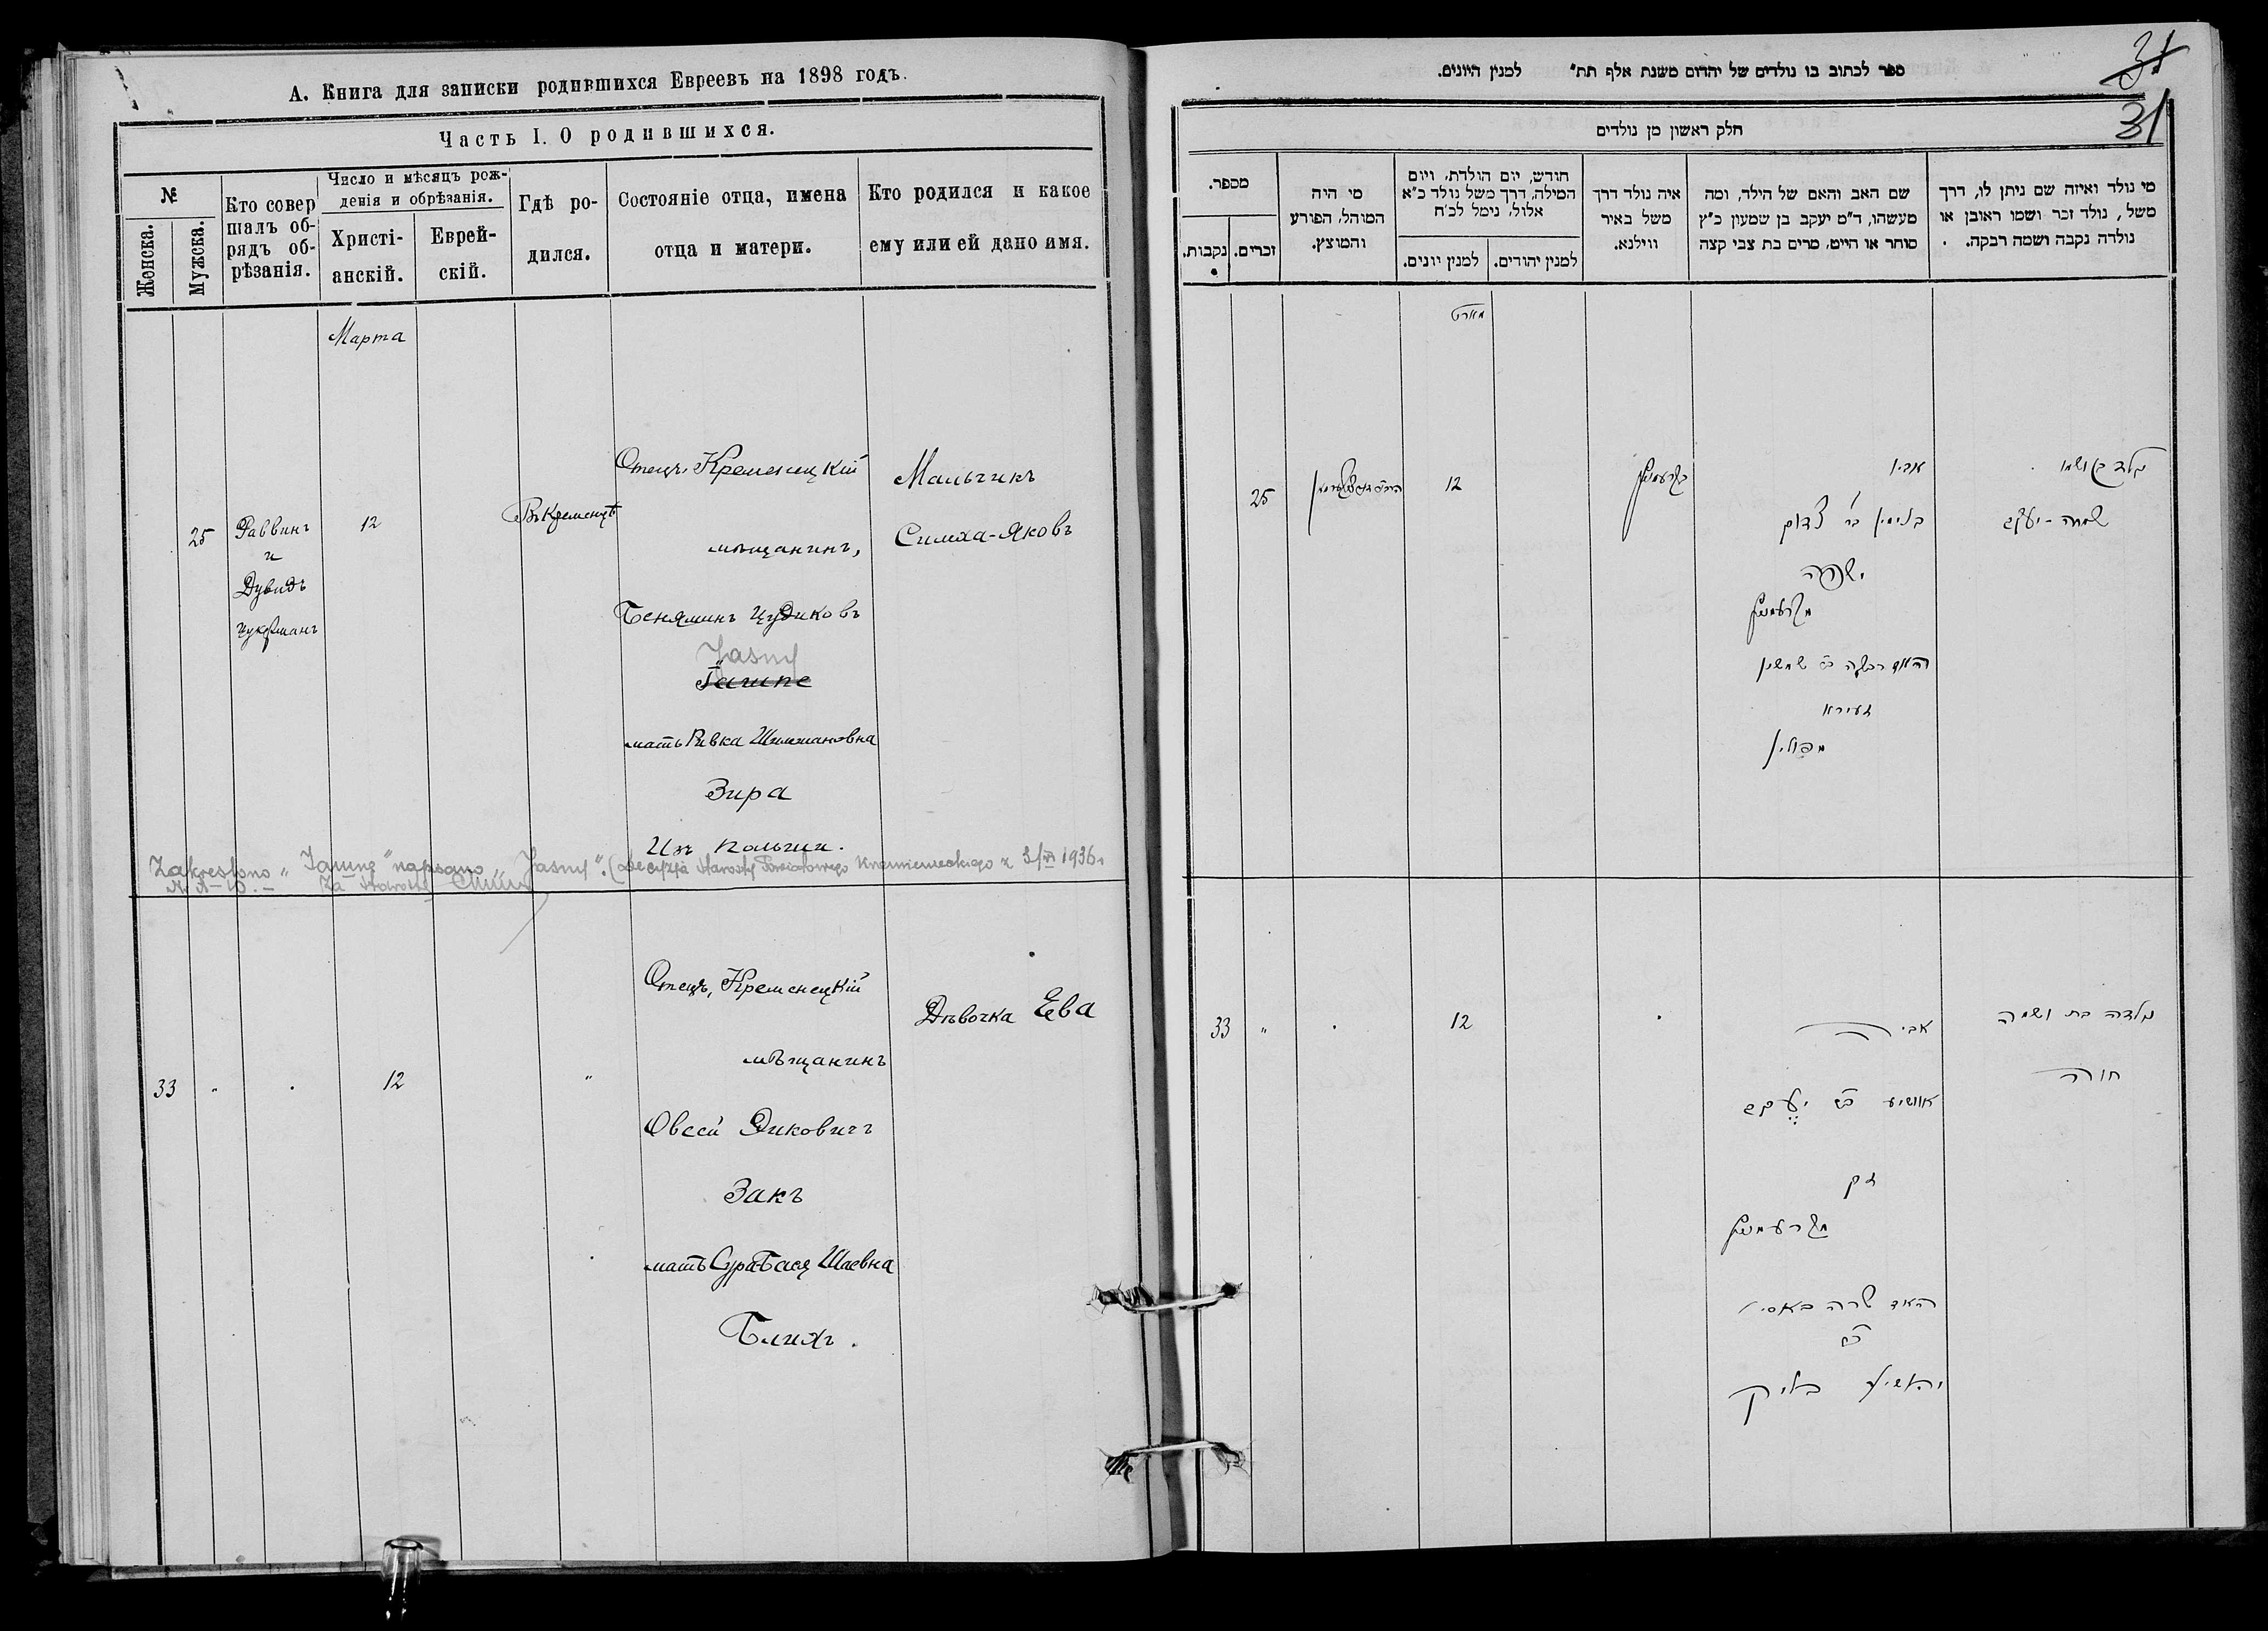 А. Книга для записки родившихся Евреевъ на 1898 годъ.
Часть I. О родившихся.
№
Женска.
Мужска.
Кто совер
шалъ об-
рядъ об-
рѣзанія.
Число и мѣсяцъ рож-
денія и обрѣзанія.
Христі-
анскій.
Еврей-
скій.
Гдѣ ро-
дился.
Состояніе отца, имена
отца и матери.
Кто родился и какое
ему или ей дано имя.
Марта
25
Раввинъ
и
Дувидъ
Цукерманъ
12
Въ Кременцѣ
Отецъ, Кременецкій
мѣщанинъ,
Беняминъ Цудиковъ
Jasny
мать Ривка Шимшановна
Зира
Изъ Польши.
Мальчикъ
Симха-Яковъ
Zakreślono „ napisano „Jasny". (decyzja Starosty Powiatowego Krzemienieckiego z 3/VI 1936 r.
Za Starostę
33
"
12
"
Отецъ, Кременецкій
мѣщанинъ
Овсей Янковичъ
Закъ
мать Сура-Бася Шаевна
Блихъ.
Дѣвочка Ева
ספר לכתוב בו נולדים של יהדום משנת אלף תת״ למנין היונים.
31
31
חלק ראשון מן נולדים
מספר.
נקבות.
זכרים.
מי היה
המוהל, הפורע
והמוצץ.
חודש, יום הולדת, ויום
המילה, דרך משל נולד כ״א
אלול, נימל לכ״ח
למנין יונים.
למנין יהודים.
איה נולד דרך
משל באיר
ווילנא.
שם האב והאם של הילד, ומה
מעשהו, ד״מ יעקב בן שמעון כ״ץ
סוחר או חייט, מרים בת צבי קצה
מי נולד ואיזה שם ניתן לו, דרך
משל, נולד זכר ושמו ראובן או
נולדה נקבה ושמה רבקה.
מארט
25
12
בקרעמניץ
אביו
בנימין בר׳ צדוק
מקרעמניץ
האם רבקה בת שמשון
זעירא
מפולין
נולד בן ושמו
שמחה-יעקב
33
"
12
אביה
אושיע בר יעקב
זק
מקרעמניץ
האם שרה באסיא
בת
ישעי׳ בליך
נולדה בת ושמה
חוה